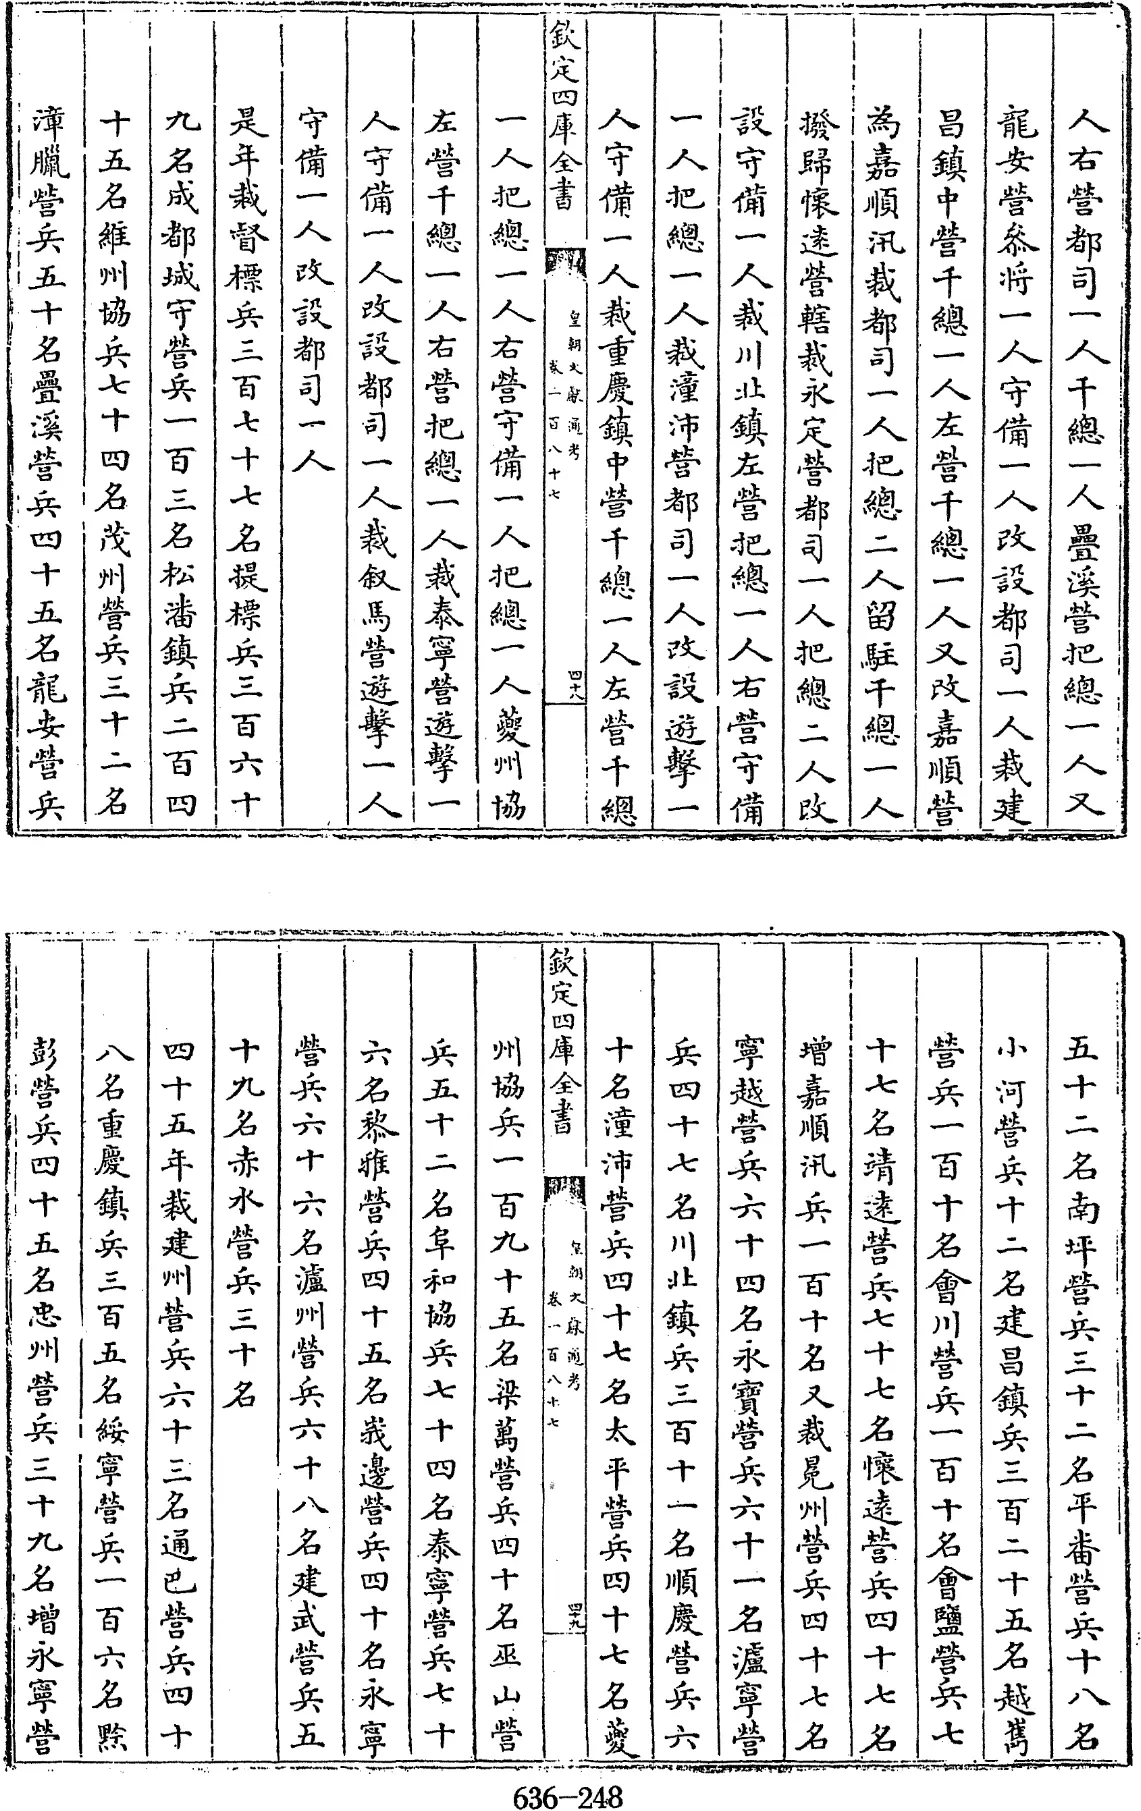 人右營都司一人千總一人疊溪營把總一人又
龍安營叅將一人守備一人改設都司一人裁建
昌鎮中營千總一人左營千總一人又改嘉順營
為嘉順汛裁都司一人把總二人留駐千總一人
撥歸懷遠營轄裁永定營都司一人把總二人改
設守備一人裁川北鎮左營把總一人右營守備
一人把總一人裁潼沛營都司一人改設遊擊一
人守備一人裁重慶鎮中營千總一人左營千總
欽定四庫全書
皇朝文獻通考
卷一百八十七
四十八
一人把總一人右營守備一人把總一人夔州協
左營千總一人右營把總一人裁泰寧營遊擊一
人守備一人改設都司一人裁叙馬營遊擊一人
守備一人改設都司一人
是年裁督標兵三百七十七名提標兵三百六十
九名成都城守營兵一百三名松潘鎮兵二百四
十五名維州協兵七十四名茂州營兵三十二名
漳臘營兵五十名疊溪營兵四十五名龍安營兵
五十二名南坪營兵三十二名平番營兵十八名
小河營兵十二名建昌鎮兵三百二十五名越雟
營兵一百十名會川營兵一百十名會鹽營兵七
十七名靖遠營兵七十七名懷遠營兵四十七名
增嘉順汛兵一百十名又裁冕州營兵四十七名
寧越營兵六十四名永寶營兵六十一名瀘寧營
兵四十七名川北鎮兵三百十一名順慶營兵六
十名潼沛營兵四十七名太平營兵四十七名夔
欽定四庫全書
皇朝文獻通考
卷一百八十七
四十九
州協兵一百九十五名梁萬營兵四十名巫山營
兵五十二名阜和協兵七十四名泰寧營兵七十
六名黎雅營兵四十五名峩邊營兵四十名永寧
營兵六十六名瀘州營兵六十八名建武營兵五
十九名赤水營兵三十名
四十五年裁建州營兵六十三名通巴營兵四十
八名重慶鎮兵三百五名綏寧營兵一百六名黔
彭營兵四十五名忠州營兵三十九名增永寧營
636-248